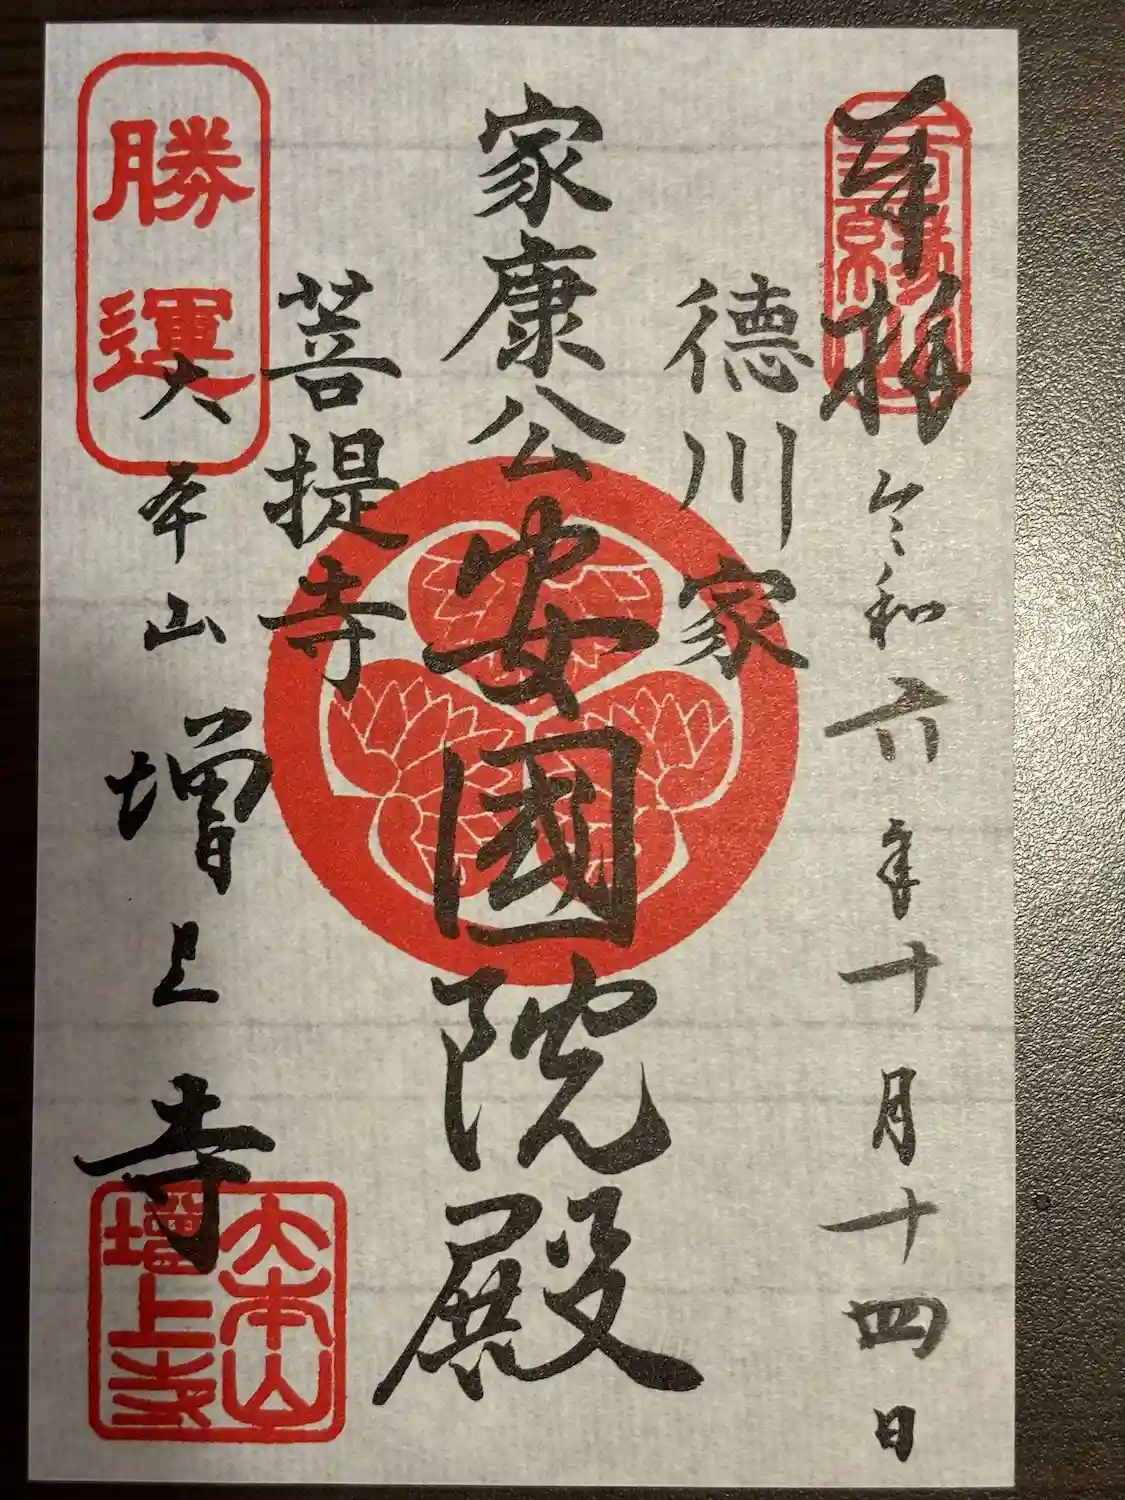 奉拝 令和六年十月十四日
徳川家
家康公安國院殿
菩提寺
勝運
大本山 増上寺
大本山
増上寺